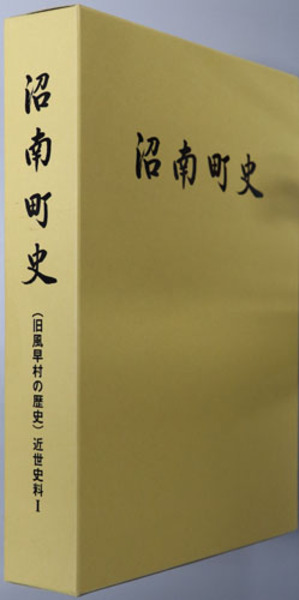 沼南町史
(旧風早村の歴史) 近世史料I
沼南町史